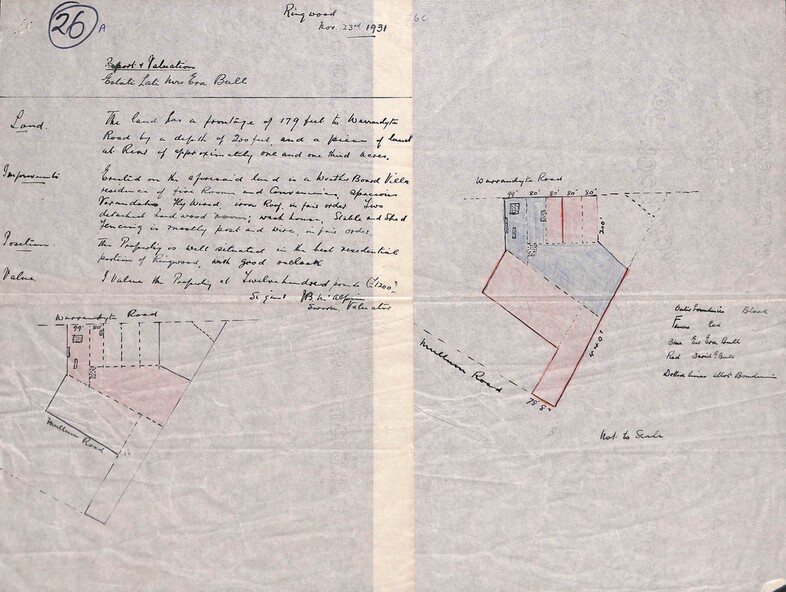 26 A
Ringwood
Nov. 23rd 1931
Report & Valuation
Estate Late Mrs Eva Bull
Land. The land has a frontage of 179 feet to Warrandyte
Road by a depth of 200 feet and a piece of land
at Rear of approximately one and one third acres.
Improvements Erected on the aforesaid land is a Weather Board Villa
residence of five Rooms and Conveniences, spacious
Verandahs, Hip, iron Roof, in fair order. Two
detached hard wood rooms, wash house, Stable and Shed
Fencing is mostly post and wire, in fair order.
Position The Property is well situated in the best residential
portion of Ringwood, with good outlook
Value I Value the Property at Twelve hundred pounds (£1200)
Signed
Sworn Valuator
Warrandyte Road
99' 80'
Mullum Road
6C
Warrandyte Road
99' 80' 80' 80' 80'
200'
440'
Mullum Road
78' 8"
Outer Boundaries Black
Fences Red
Blue Eva Bull
Red David Bull
Dotted lines Allot. Boundaries
Not to Scale